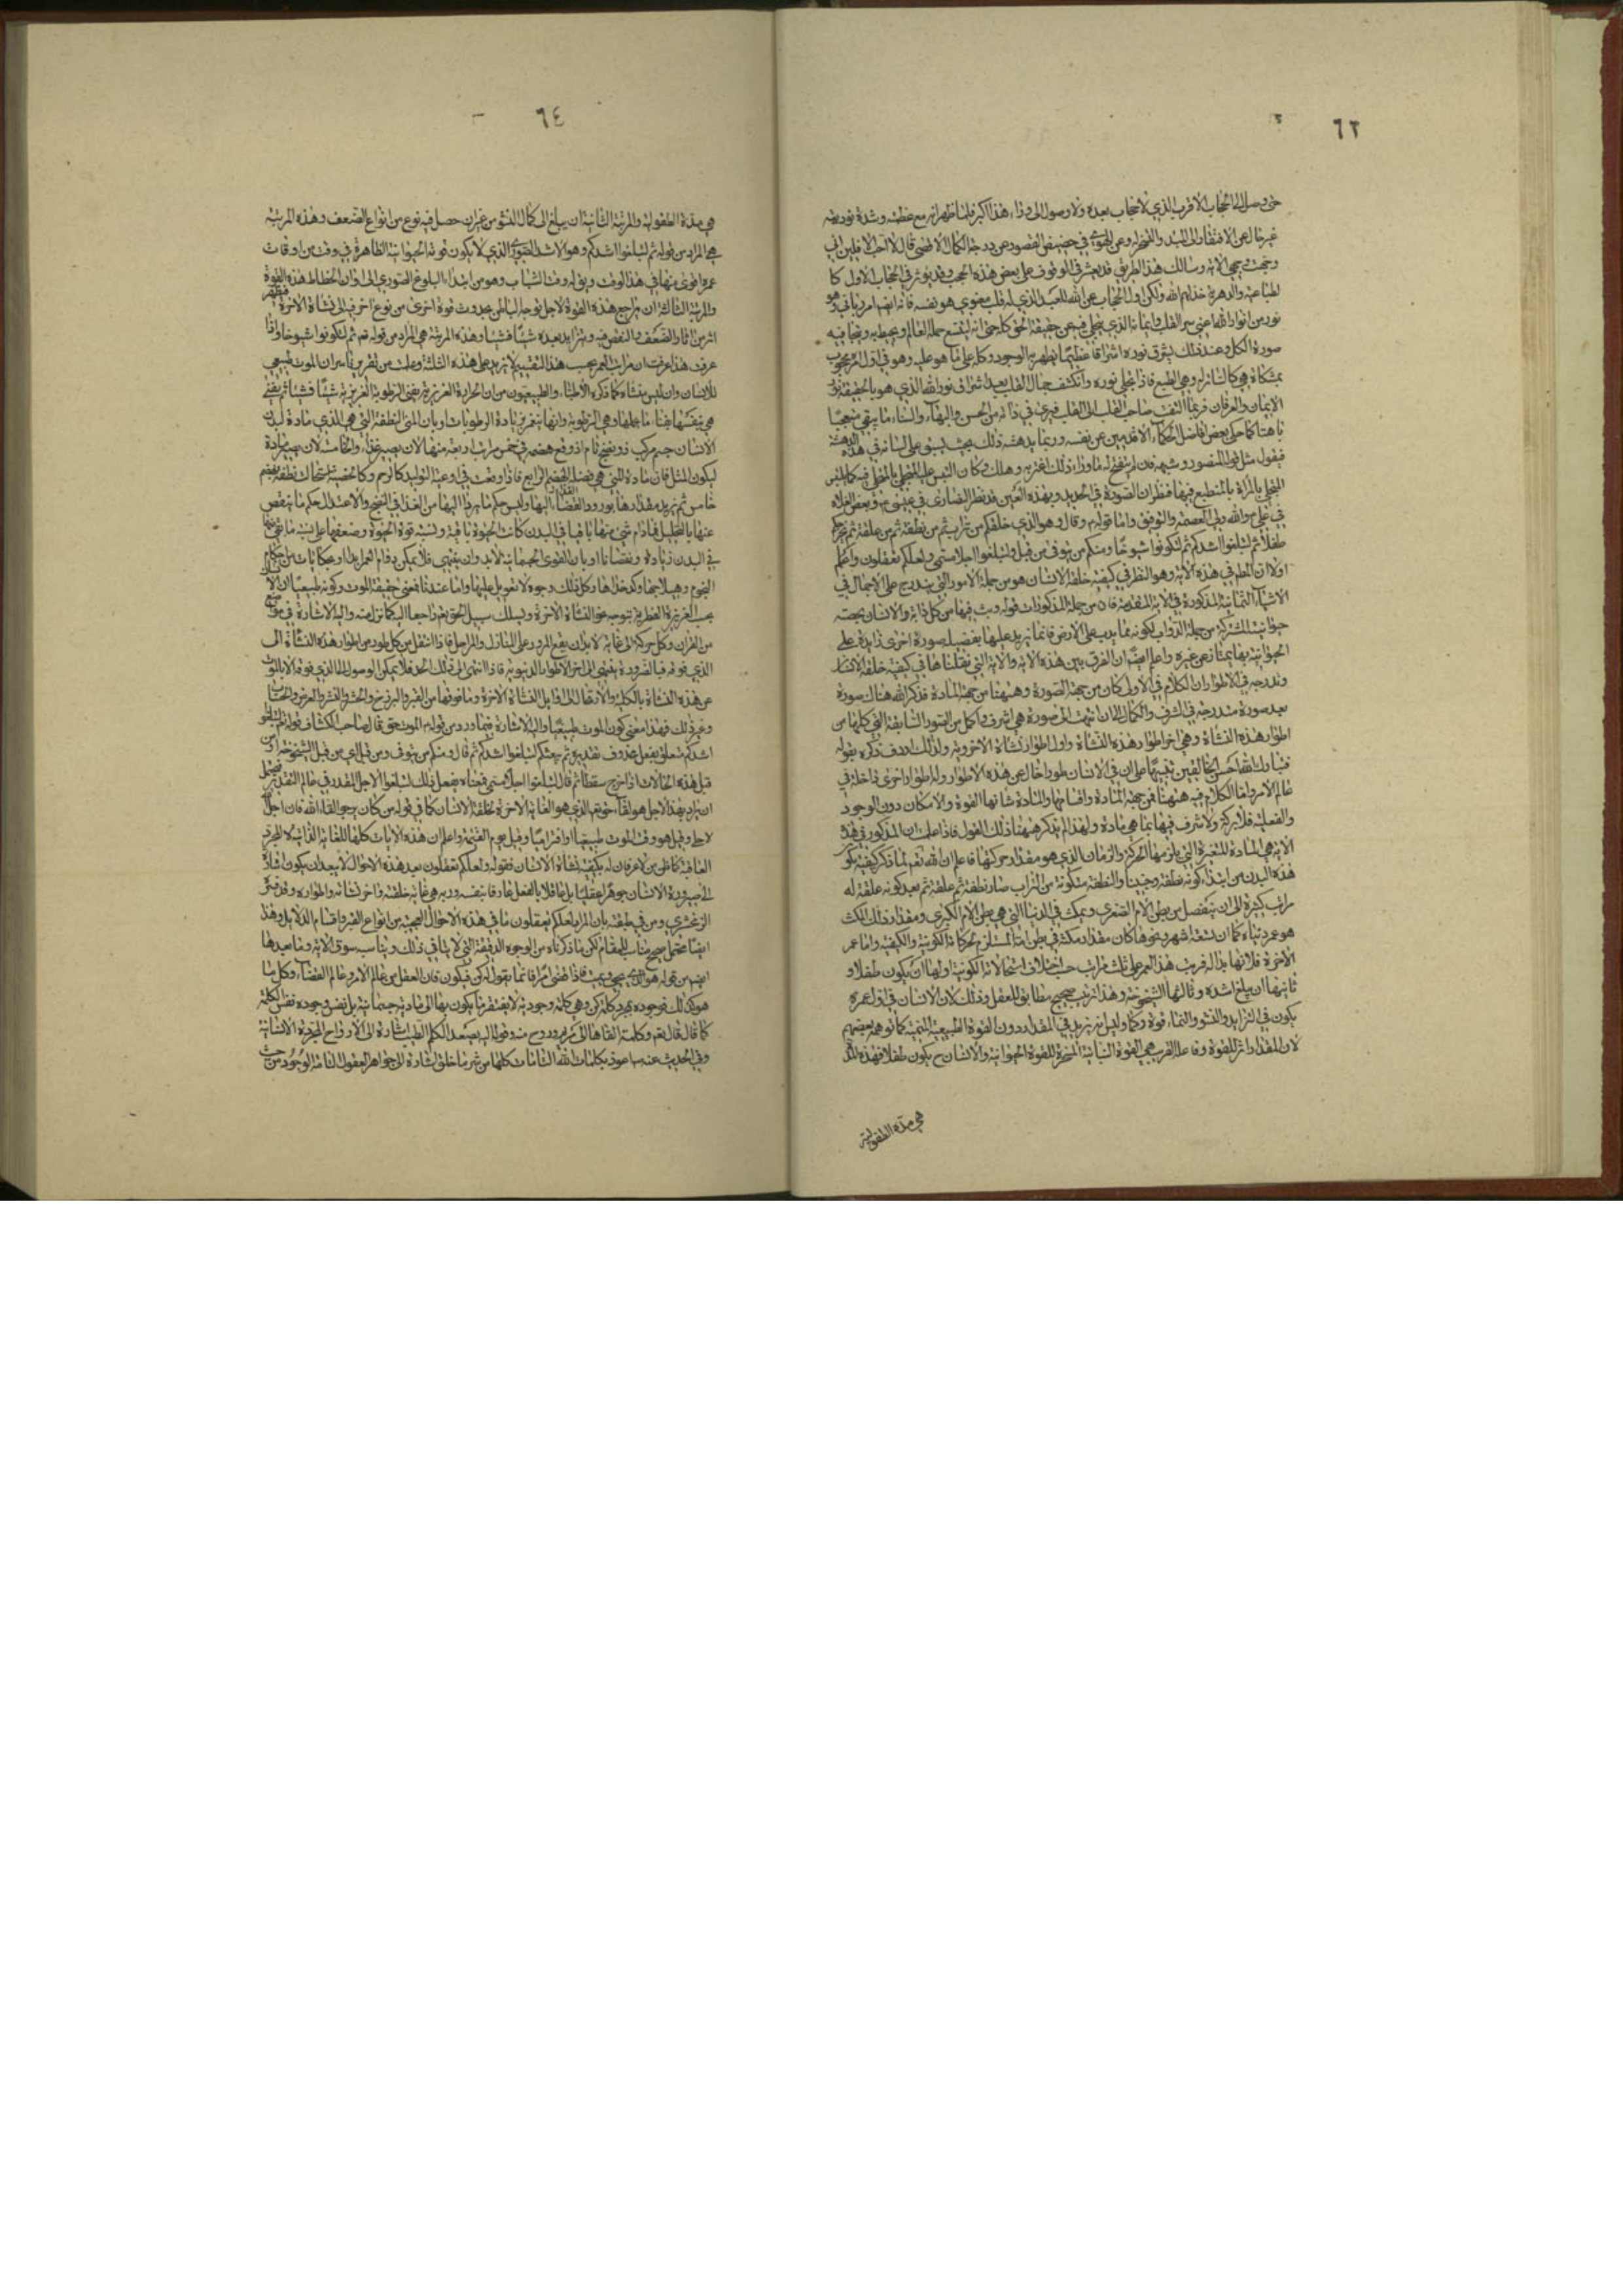 ٦٢
حتى وصل الى الحجاب الاقرب الذي لا حجاب بعده ولا وصول الى وراء هذا اكبر فلما ظهر انه مع عظمته وشدة نوريته
غير خال عن الافتقار الى المبدء و عن الهوى في حضيض القصور عن درجة الكمال الاقصى قال لا احب الافلين اني
وجهت وجهي الاية وسالك هذا الطريق قد يغتر في الوقوف على بعض هذه الحجب وقد يغتر في الحجاب الاول كا
لطباعية والدهرية خذلهم الله ولكن اول الحجاب عن الله للعبد الذي له قلب معنوي هو نفسه فانه ايضا امر رباني وهو
نور من انوار الله اعني سر القلب الذي يتجلى فيه عن حقيقة الحق كله حتى انه ليتسع جملة العالم ويحيط به ويتجلى فيه
صورة الكل وعند ذلك يشرق نوره اشراقا عظيما يظهر به الوجود كله على ما هو عليه وهو في اول امره محجوب
بمشكاة هي كالساتر له وهي الطبع فاذا تجلى نوره وانكشف جمال القلب بعد اشراق نور الله الذي هو بالحقيقة نور
الايمان والعرفان فربما التفت صاحب القلب الى القلب فيرى في ذاته من الحسن والبهاء والسناء ما يبقى متعجبا
باهتا كما حكى بعض افاضل الحكماء الاقدمين عن نفسه وربما يدهشه ذلك بحيث يسبق على لسانه في هذه الدهشة
فيقول مثل قول المنصور وشبهه فان لم يتضح له ما وراء ذلك اغتر به وهلك وكان التبس عليه المتجلى بالمتجلى فيه كما يلتبس
المتجلى بالمرآة بالمنطبع فيها فظن ان الصورة في الحديد وبهذه العين قد نظر النصارى في عيسى ع وبعض الغلاة
في علي ع والله ولي العصمة والتوفيق واما قوله تم وقال وهو الذي خلقكم من تراب ثم من نطفة ثم من علقة ثم يخرجكم
طفلا ثم لتبلغوا اشدكم ثم لتكونوا شيوخا ومنكم من يتوفى من قبل ولتبلغوا اجلا مسمى ولعلكم تعقلون واعلم
اولا ان العلم في هذه الاية وهو النظر في كيفية خلقة الانسان هو من جملة الامور التي يندرج على الاجمال في
الاشياء الثمانية المذكورة في الاية المتقدمة فان من جملة المذكورات قوله وبث فيها من كل دابة والانسان بحصته
حيوانيته المشتركة من جملة الدواب لكونه مما يدب على الارض فانما يزيد عليها بفضله صورة اخرى زايدة على
الحيوانية بها يمتاز عن غيره واعلم ايضا ان الفرق بين هذه الاية والاية التي نقلناها في كيفية خلقة الانسان
وتدرجه في الاطوار ان الكلام في الاول كان من جهة الصورة وههنا من جهة المادة فذكر الله هناك صورة
بعد صورة متدرجة في الشرف والكمال الى ان انتهت الى صورة هي اشرف واكمل من الصور السابقة التي كلها من
اطوار هذه النشاة وهي اخر اطوار هذه النشاة واول اطوار نشاة الاخروية ولذلك اردف ذكره بقوله
فتبارك الله احسن الخالقين تنبيها على ان في الانسان طورا خال عن هذه الاطوار وله اطوار اخرى داخلة في
عالم الامر واما الكلام فيه ههنا فمن جهة المادة والمادة شانها القوة والامكان دون الوجود
والفعلية فلا بركة ولا شرف فيها بما هي مادة ولهذا لم يذكر ههنا ذلك القول فاذا علمت ان المذكور في هذه
الاية هي المادة المتغيرة التي يلزمها الحركة والزمان الذي هو مقدار حركتها فاعلم ان الله تعم لما ذكر كيفية تكو
هذه البدن من ابتداء كونه نطفة وجنينا والنطفة متكونة من التراب صار نطفة ثم علقة ثم بعد كونه علقة له
مراتب كثيرة الى ان ينفصل من بطن الام الصغرى ويمكث في الدنيا التي هي بطن الام الكبرى ومقدار ذلك المكث
هو عمر دنياه كما ان تسعة اشهر ونحوها كان مقدار مكثه في بطن امه المستلزم لحركاته الكونية والكيفية واما عمر
الاخرة فلا نهاية له فرتب هذا العمر على ثلث مراتب حسب اختلاف استحالاته الكونية اولها ان يكون طفلا و
ثانيها ان يبلغ اشده وثالثها الشيخوخة وهذا ترتيب صحيح مطابق للعقل وذلك لان الانسان في اول عمره
يكون في التزايد والنشو والنماء قوة وكما وليس انه يزيد في المقدار دون القوة الطبيعية المنمية كما توهمه بعضهم
لان المقدار اثر للقوة وفاعله القريب هي القوة النباتية المسخرة للقوة الحيوانية والانسان ح يكون طفلا فهذه المدة
هي مدة الطفولية
٦٤
هي مدة الطفولية والمرتبة الثانية ان يبلغ الى كمال النشو من غير ان حصل فيه نوع من انواع الضعف وهذه المرتبة
هي المراد من قوله ثم لتبلغوا اشدكم وهو الاشد الصوري الذي لا يكون قوته الحيوانية الظاهرة في وقت من اوقات
عمره اقوى منها في هذا الوقت ويق له وقت الشباب وهو من ابتداء البلوغ الصوري الى اوان انحطاط هذه القوة
والمرتبة الثالثة ان يتراجع هذه القوة لاجل توجه الباطن بحدوث قوة اخرى من نوع اخر في نشاة الاخرة فيظهر
اثر من اثار الضعف والنقص فيه ويتزايد بعده شيئا فشيئا وهذه المرتبة هي المراد من قوله تعم ثم لتكونوا شيوخا واذا
عرفت هذا عرفت ان مراتب العمر بحسب هذا التقسيم لا يزيد على هذه الثلثة وعلمت من تقريرنا سر ان الموت طبيعي
للانسان وان ليس منشاه كما ذكره الاطباء والطبيعيون من ان الحرارة الغريزية يفنى الرطوبة الغريزية شيئا فشيئا ثم يفنى
هي بنفسها بفناء ما يحملها وهي الرطوبة وبيان المني النطفة التي هي مادة لبدن
الانسان جسم مركب ذو نضج تام اذ وقع هضمه في خمس مراتب اربعة منها لان يصير غذاء والخامسة لان يصير مادة
ليكون المثل فان مادة المني هي فضل الهضم الرابع فاذا وقعت في اوعية التوليد كالرحم وكالخصية استحالت نطفة بهضم
خامس ثم يزيد مقدارها بورود الغذاء اليها وليس حكم ما يرد اليها من الغذاء في النضج والاعتدال حكم ما ينقص
عنها بالتحليل فما دام شيء منها باقيا في البدن كانت الحيوة باقية ونسبة قوة الحيوة وضعفها على نسبة ما بقي منها
في البدن زيادة ونقصانا او بان القوى الجسمانية لابد وان ينتهي فلا يمكن دوام العمر ابدا او بحكايات من احكام
النجوم وهيلاجها وكدخداها وكل ذلك وجوه لا تعويل عليها واما عندنا فمعنى حقيقة الموت وكونه طبيعيا ان
بحسب الغريزة الفطرية يتوجه نحو النشاة الاخرة ويسلك سبيل الحق تعم راجعا اليه كما نزل منه واليه الاشارة في مواضع
من القران وكل حركة الى غاية لابد ان يقع المرور على المنازل والمراحل فاذا انتقل من كل طور من اطوار هذه النشاة الى
الذي فوقه فبالضرورة ينتهي الى اخر الاطوار الدنيوية فاذا انتهى الى ذلك الحد فلا يمكن الوصول الى الذي فوقه الا بالموت
عن هذه النشاة بالكلية والارتقاء الى اوايل النشاة الاخرة وما فوقها من القبر والبرزخ والحشر والنشر والعرض والحساب
وغير ذلك فهذا معنى كون الموت طبيعيا واليه الاشارة فيما ورد من قوله تم الموت حق قال صاحب الكشاف قوله لتبلغوا
اشدكم متعلق بفعل محذوف تقديره ثم يبقيكم لتبلغوا اشدكم ثم قال ومنكم من يتوفى ومن قبل اي من قبل الشيخوخة او من
قبل هذه الحالات اذا خرج سقطا ثم قال لتبلغوا اجلا مسمى فمعناه يفعل ذلك لتبلغوا الاجل المقدر في عالم التقدير
ان يراد بهذا الاجل هو لقاءه تعم الذي هو الغاية الاخرة لخلقة الانسان كما في قوله من كان يرجو لقاء الله فان اجل الله
لات وقيل هو وقت الموت طبيعيا او اختراميا وقيل يوم القيمة واعلم ان هذه الايات كلها للغاية الذاتية لا لمجرد
العاقبة كما ظن من لا عرفان له بكيفية نشاة الانسان فقوله ولعلكم تعقلون بعد هذه الاحوال لا يبعد ان يكون اشارة
الى صيرورة الانسان جوهرا عقليا بل عاقلا بالفعل عارفا بنفسه وربه هي غاية خلقته واخر نشاته واطواره وقد فسر
الزمخشري ومن في طبقته بان المراد لعلكم تعقلون ما في هذه الاحوال العجيبة من انواع العبر واقسام الدلايل وهذا
ايضا محتمل صحيح مناسب للمقام لكن ما ذكرناه من الوجوه الدقيقة التي لا ينافي ذلك ويناسبه سوق الاية وما بعدها
ايضا من قوله هو الذي يحيي ويميت فاذا قضى امرا فانما يقول له كن فيكون فان العقل من عالم الامر وعالم القضاء وكل ما
هو كذلك فوجوده بمجرد كلمة كن وهي كلمة وجودية لا يفتقر فيما يكون بها الى مادة جسمانية بل نفس وجوده نفس الكلمة
كما قال تعم وكلمته القاها الى مريم وروح منه وقوله اليه يصعد الكلم الطيب اشارة الى الارواح المجردة الانسانية
وفي الحديث عنه ص اعوذ بكلمات الله التامات كلها من شر ما خلق اشارة الى جواهر العقول التامة الوجود من حيث